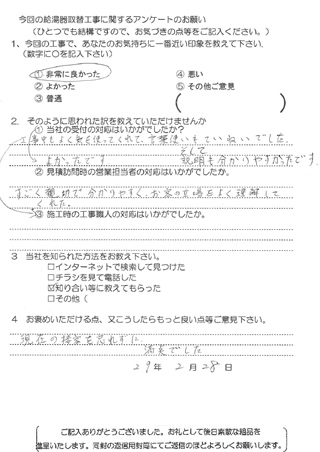 今回の給湯器取替工事に関するアンケートのお願い
(ひとつでも結構ですので、お気づきの点等をご記入ください。)
1、今回の工事で、あなたのお気持ちに一番近い印象を教えて下さい。
(数字に○を記入下さい)
① 非常に良かった ④ 悪い
② よかった ⑤ その他ご意見
③ 普通 ( )
2. そのように思われた訳を教えていただけませんか
① 当社の受付の対応はいかがでしたか?
工事中もよく気を使ってくれて、言葉使いもていねいでした。
そして
よかったです 説明も分かりやすかったです
② 見積訪問時の営業担当者の対応はいかがでしたか。
すごく親切で分かりやすく、お客の立場をよく理解して
くれた。
③ 施工時の工事職人の対応はいかがでしたか。
3 当社を知られた方法をお教え下さい。
□インターネットで検索して見つけた
□チラシを見て電話した
☑知り合い等に教えてもらった
□その他(
4 お褒めいただける点、又こうしたらもっと良い点等ご意見下さい。
現在の接客を忘れずに
満足でした
29年 2月 28日
ご記入ありがとうございました。お礼として後日素敵な粗品を
進呈いたします。同封の返信用封筒にてご返信のほどよろしくお願いします。